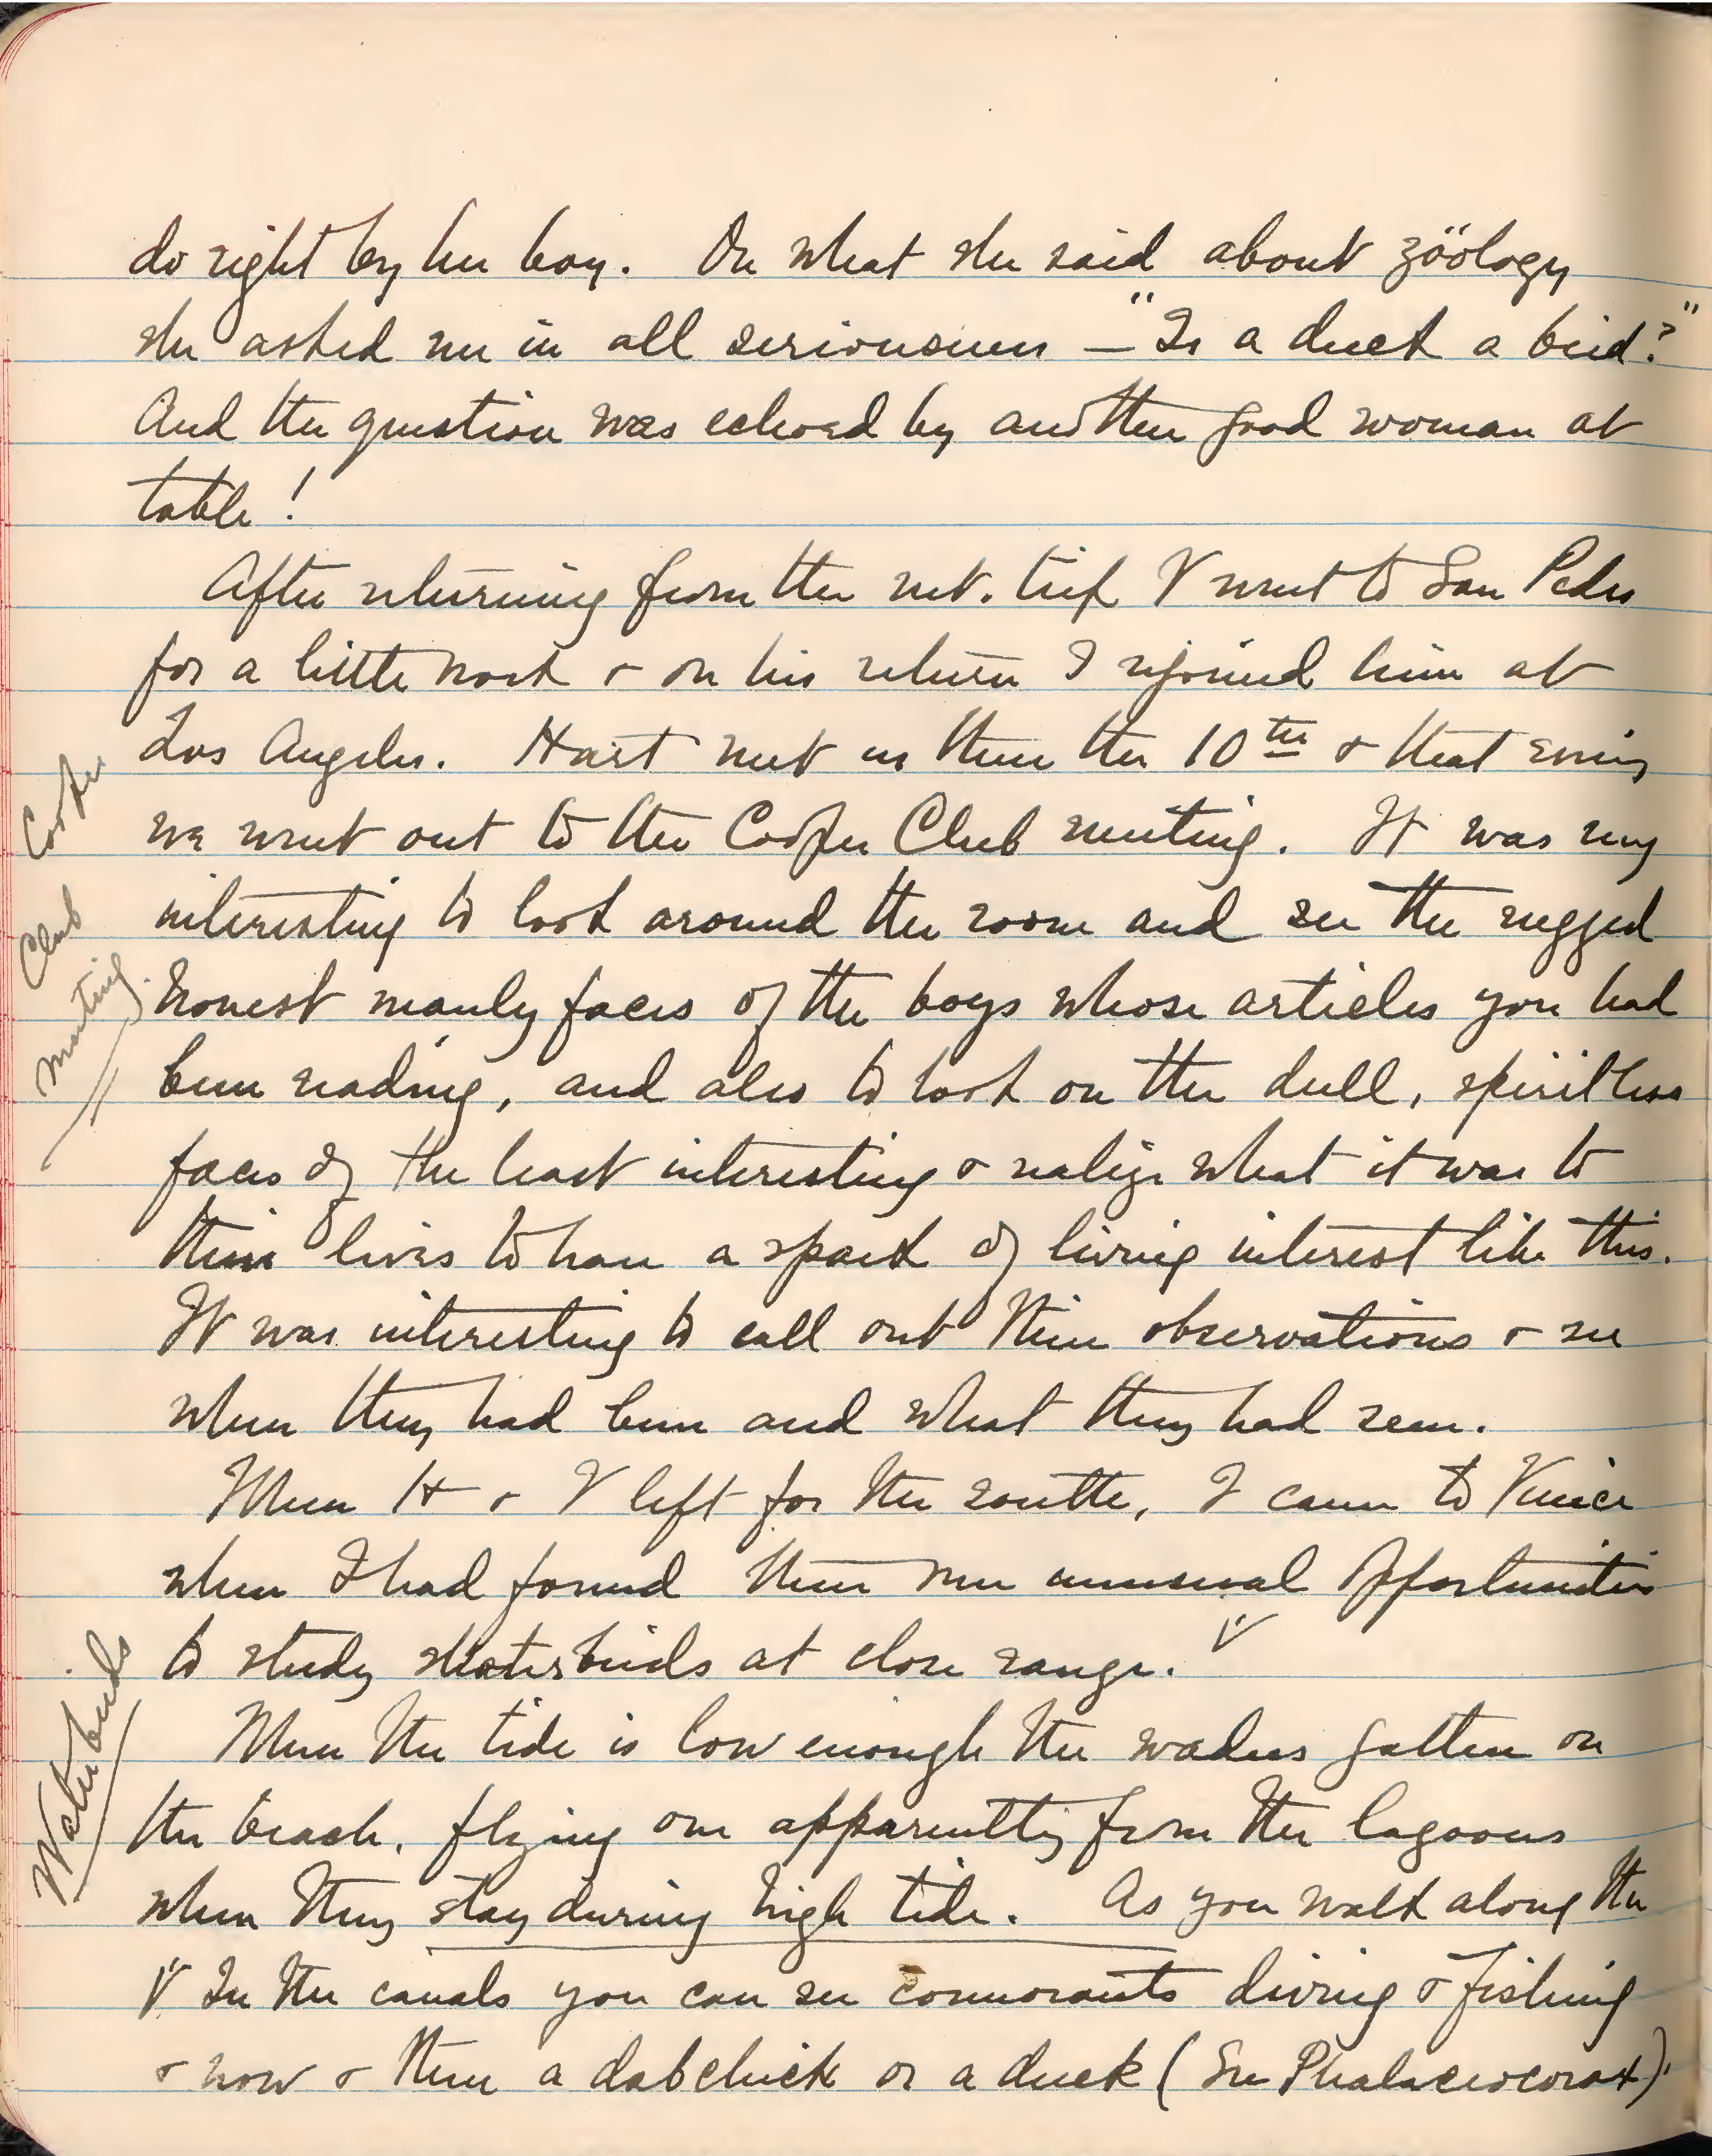 do right by her boy. On what she said about zöology
she asked me in all seriousness — "Is a duck a bird?"
And the question was echoed by another good woman at
table!
After returning from the mt. trip V went to San Pedro
for a little work & on his return I rejoined him at
Los Angeles. Hart met us there the 10th & that evening
we went out to the Cooper Club meeting. It was very
Cooper
Club
Meeting.
interesting to look around the room and see the rugged
honest manly faces of the boys whose articles you had
been reading, and also to look on the dull, spiritless
faces of the least interesting & realize what it was to
their lives to have a spark of living interest like this.
It was interesting to call out their observations & see
where they had been and what they had seen.
When H & V left for the south, I came to Venice
where I had found there were unusual opportunities
to study waterbirds at close range. V
Waterbirds
When the tide is low enough the waders gather on
the beach, flying over apparently from the lagoons
where they stay during high tide. As you walk along the
V In the canals you can see cormorants diving & fishing
& now & then a dabchick or a duck (See Phalacrocorax).